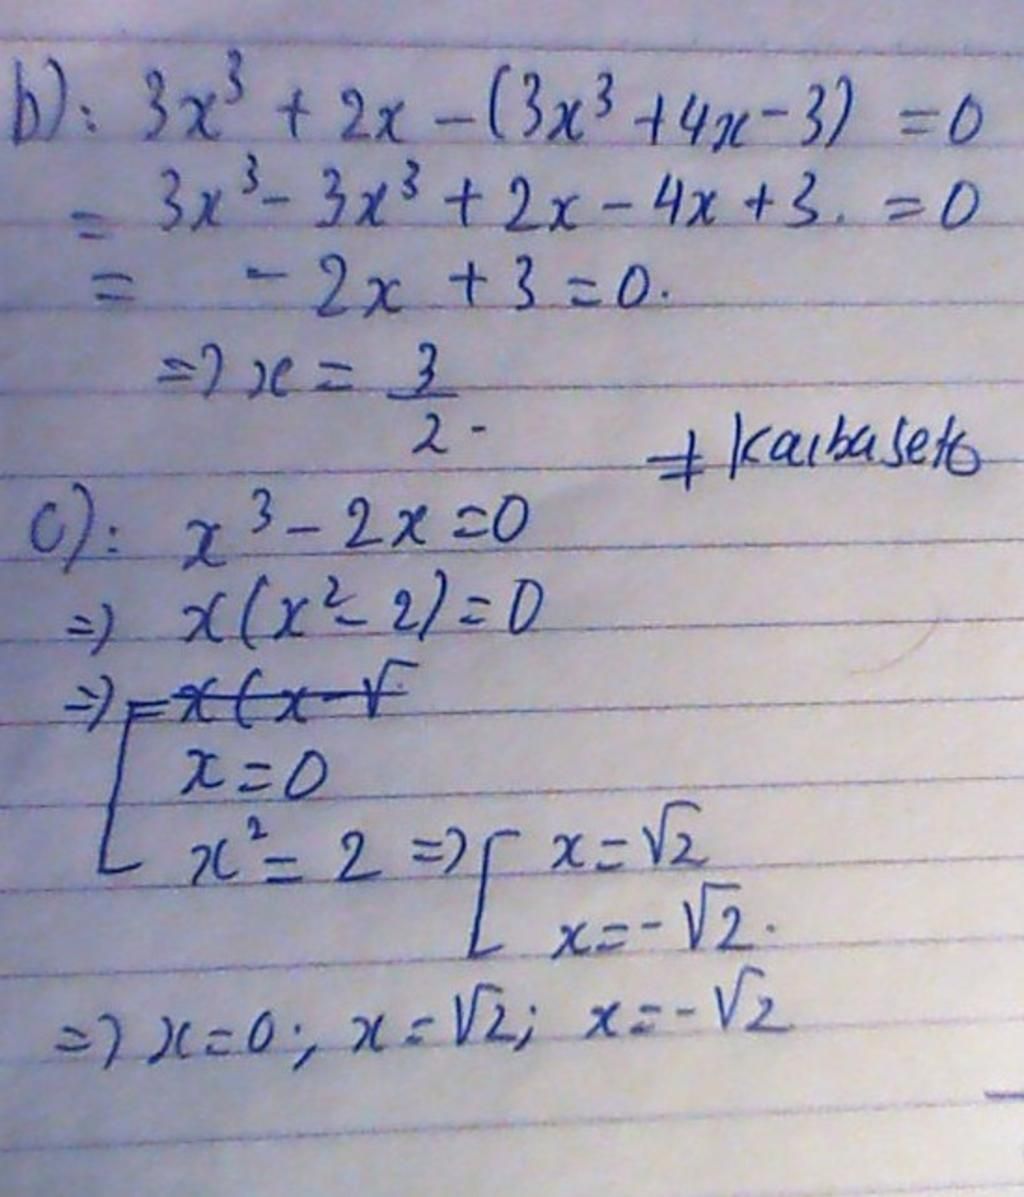 b): 3x³ + 2x - (3x³ + 4x - 3) = 0
= 3x³ - 3x³ + 2x - 4x + 3. = 0
= - 2x + 3 = 0.
=> x = 3/2.
Kaibaseto
c): x³ - 2x = 0
=> x(x² - 2) = 0
=> x(x - √
x = 0
x² = 2 => x = √2
x = -√2.
=> x = 0; x = √2; x = -√2